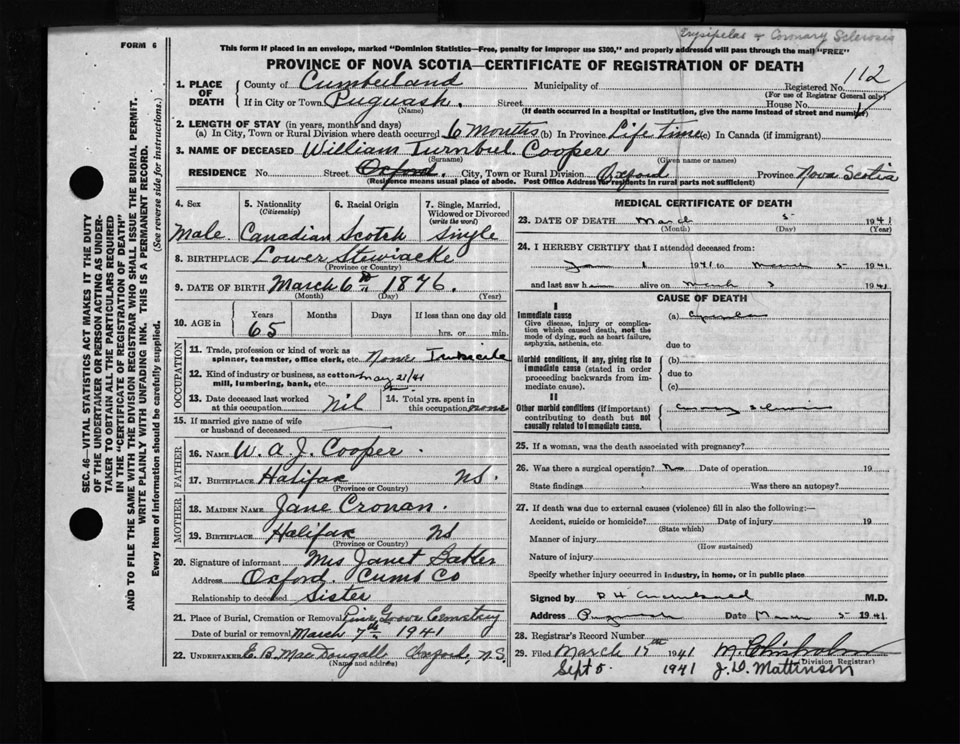 Erysipelas & Coronary Sclerosis
FORM 6
This form if placed in an envelope, marked "Dominion Statistics—Free, penalty for improper use $300," and properly addressed will pass through the mail "FREE"
PROVINCE OF NOVA SCOTIA—CERTIFICATE OF REGISTRATION OF DEATH
1. PLACE OF DEATH County of Cumberland Municipality of Registered No. 112
(For use of Registrar General only)
If in City or Town Pugwash. Street House No.
(Name) (If death occurred in a hospital or institution, give the name instead of street and number)
2. LENGTH OF STAY (in years, months and days)
(a) In City, Town or Rural Division where death occurred 6 Months (b) In Province Life time (c) In Canada (if immigrant)
3. NAME OF DECEASED William Turnbul Cooper
(Surname) (Given name or names)
RESIDENCE No. Street Oxford. City, Town or Rural Division Oxford Province Nova Scotia
(Residence means usual place of abode. Post Office Address for residents in rural parts not sufficient)
4. Sex 5. Nationality (Citizenship) 6. Racial Origin 7. Single, Married, Widowed or Divorced (write the word)
Male. Canadian Scotch Single
8. BIRTHPLACE Lower Stewiacke
(Province or Country)
9. DATE OF BIRTH March 6th 1876.
(Month) (Day) (Year)
10. AGE in Years Months Days If less than one day old
65 hrs. or min.
OCCUPATION
11. Trade, profession or kind of work as spinner, teamster, office clerk, etc. None Imbecile
12. Kind of industry or business, as cotton mill, lumbering, bank, etc. May 21/41
13. Date deceased last worked at this occupation Nil 14. Total yrs. spent in this occupation none
15. If married give name of wife or husband of deceased
FATHER
16. NAME W. A. J. Cooper.
17. BIRTHPLACE Halifax NS.
(Province or Country)
MOTHER
18. MAIDEN NAME Jane Cronan.
19. BIRTHPLACE Halifax NS
(Province or Country)
20. Signature of informant Mrs Janet Baker
Address Oxford. Cumb Co
Relationship to deceased Sister
21. Place of Burial, Cremation or Removal Pine Grove Cemetery
Date of burial or removal March 7th 1941
22. UNDERTAKER E. B. MacDougall Oxford, N.S.
(Name and address)
MEDICAL CERTIFICATE OF DEATH
23. DATE OF DEATH March 5 1941
(Month) (Day) (Year)
24. I HEREBY CERTIFY that I attended deceased from:
Jan 1 1941 to March 5 1941
and last saw h alive on March 3 1941
CAUSE OF DEATH
I
Immediate cause (a)
Give disease, injury or complication which caused death, not the mode of dying, such as heart failure, asphyxia, asthenia, etc.
due to
Morbid conditions, if any, giving rise to immediate cause (stated in order proceeding backwards from immediate cause). (b)
due to
(c)
II
Other morbid conditions (if important) contributing to death but not causally related to immediate cause.
25. If a woman, was the death associated with pregnancy?
26. Was there a surgical operation? No Date of operation 19
State findings Was there an autopsy?
27. If death was due to external causes (violence) fill in also the following:—
Accident, suicide or homicide? Date of injury 19
(State which)
Manner of injury
(How sustained)
Nature of injury
Specify whether injury occurred in industry, in home, or in public place
Signed by M.D.
Address Pugwash Date March 5 1941
28. Registrar's Record Number
29. Filed March 17th 1941 M. Chisholm
(Division Registrar)
Sept 5 1941 J. D. Mattinson
SEC. 46—VITAL STATISTICS ACT MAKES IT THE DUTY
OF THE UNDERTAKER OR PERSON ACTING AS UNDER-
TAKER TO OBTAIN ALL THE PARTICULARS REQUIRED
IN THE "CERTIFICATE OF REGISTRATION OF DEATH"
AND TO FILE THE SAME WITH THE DIVISION REGISTRAR WHO SHALL ISSUE THE BURIAL PERMIT.
WRITE PLAINLY WITH UNFADING INK. THIS IS A PERMANENT RECORD.
Every item of information should be carefully supplied. (See reverse side for instructions.)